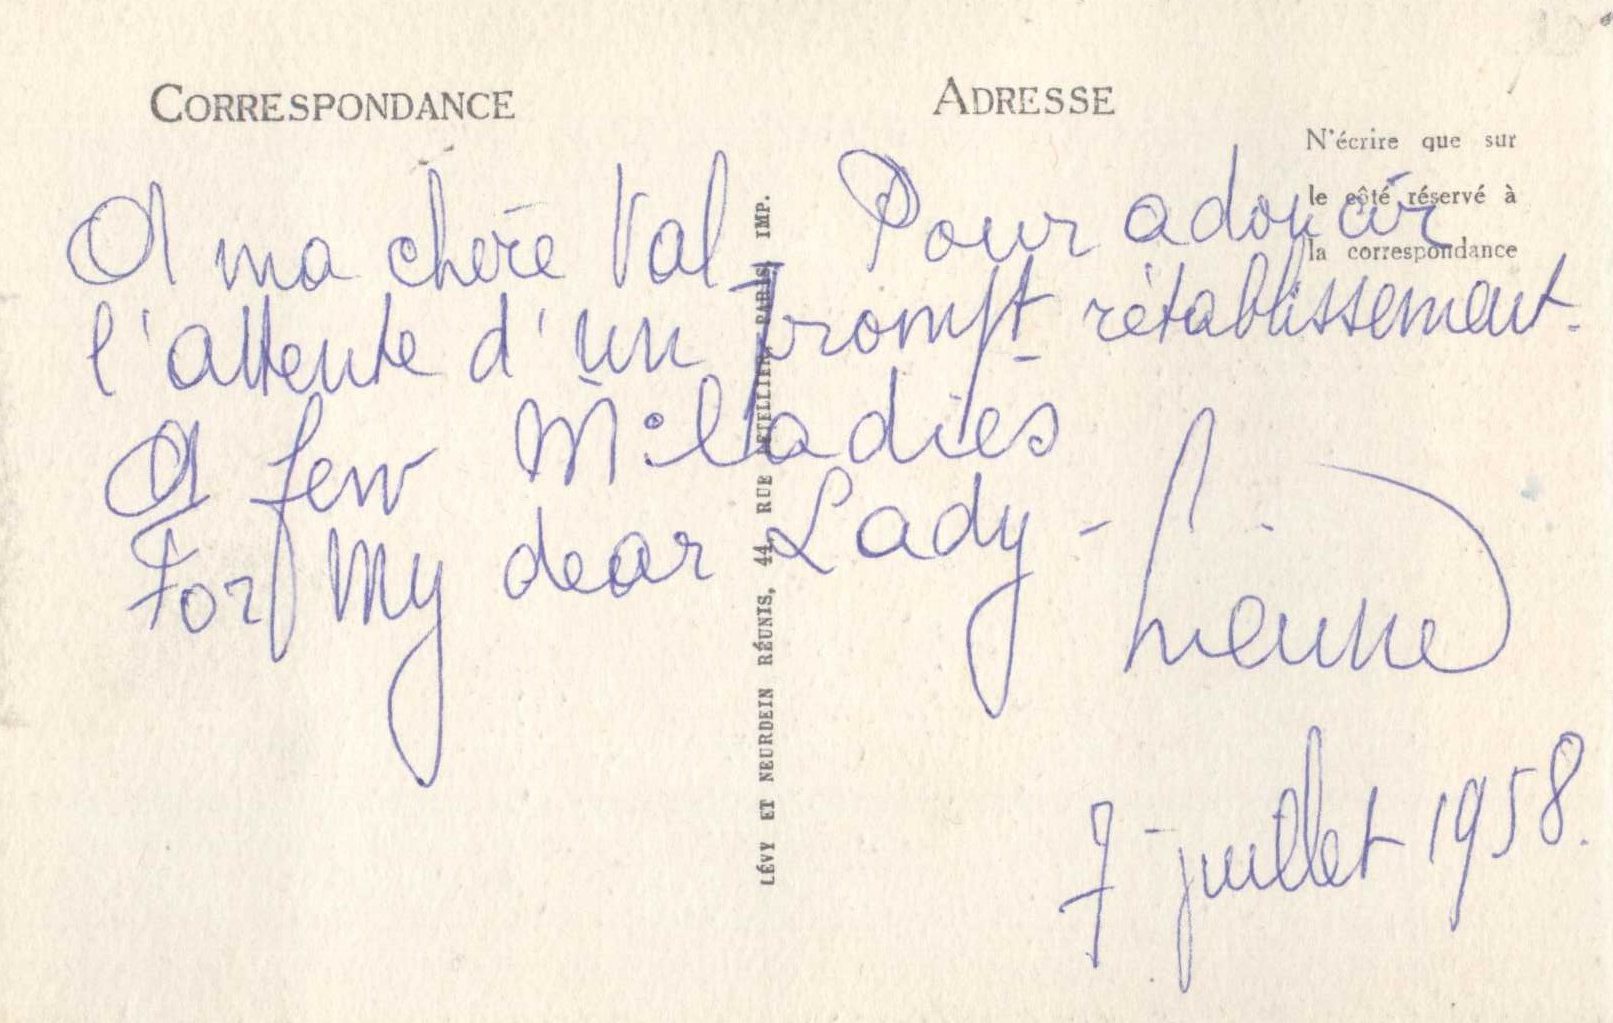 CORRESPONDANCE
ADRESSE
N'écrire que sur
le côté réservé à
la correspondance
A ma chère Val – Pour adoucir
l'attente d'un prompt rétablissement.
A few Milladies
For My dear Lady –
7 juillet 1958.
LÉVY ET NEURDEIN RÉUNIS, 44, RUE LETELLIER, PARIS, IMP.